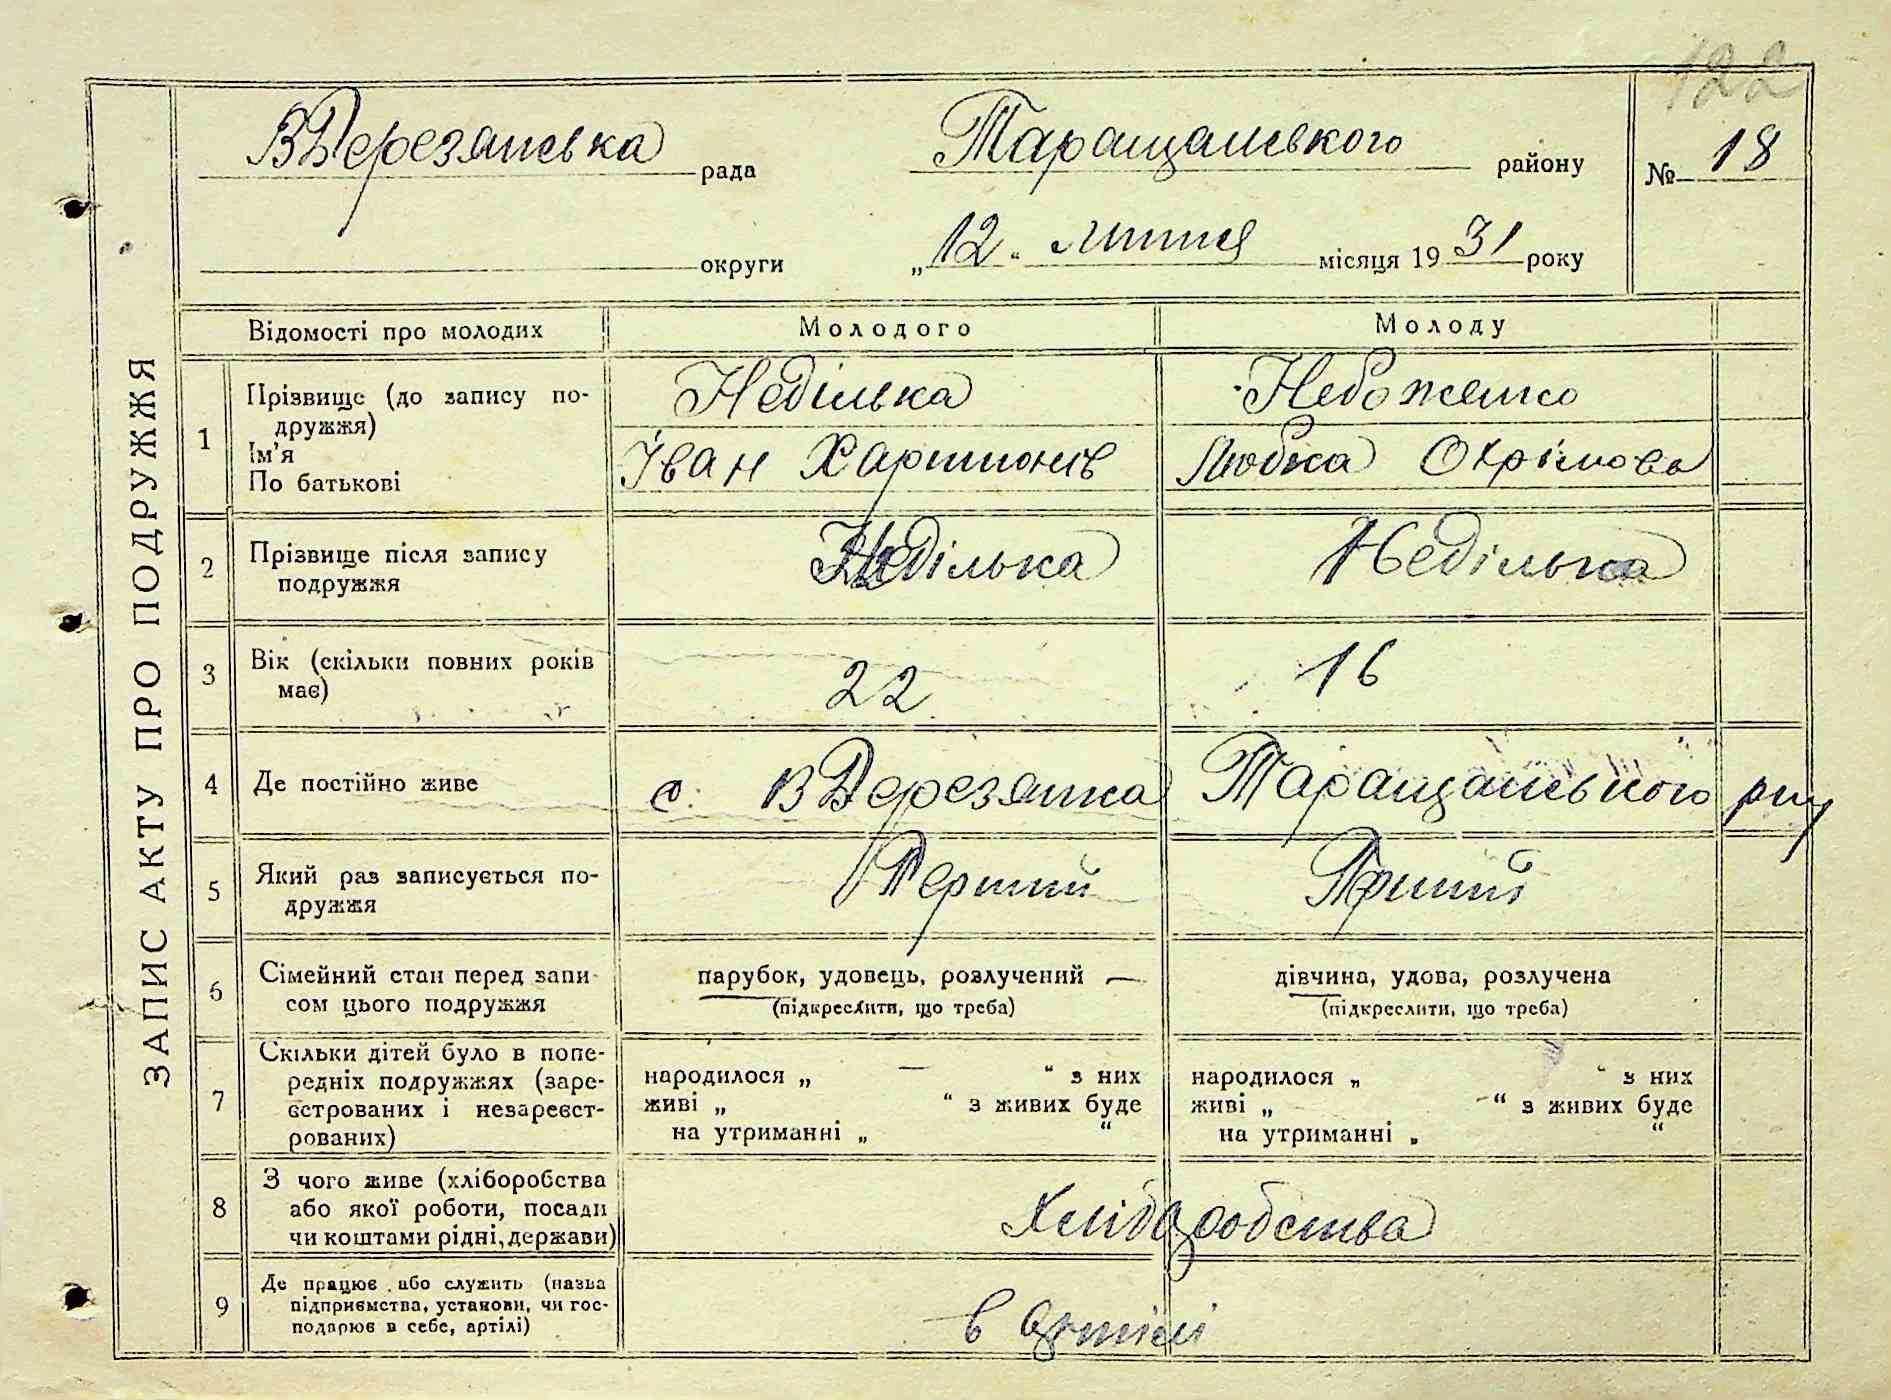 122
ВДерезянська рада Таращанського району № 18
округи „12“ липня місяця 1931 року
ЗАПИС АКТУ ПРО ПОДРУЖЖЯ
Відомості про молодих Молодого Молоду
1 Прізвище (до запису по-
дружжя)
Ім'я
По батькові
Неділька Небоженко
Іван Харитонів Любка Охрімова
2 Прізвище після запису
подружжя
Неділька Неділька
3 Вік (скільки повних років
має)
22 16
4 Де постійно живе с. ВДерезянка Таращанського рну
5 Який раз записується по-
дружжя
Перший Перший
6 Сімейний стан перед запи-
сом цього подружжя
парубок, удовець, розлучений —
(підкреслити, що треба)
дівчина, удова, розлучена
(підкреслити, що треба)
7 Скільки дітей було в попе-
редніх подружжях (заре-
єстрованих і незареєст-
рованих)
народилося „ — “ з них
живі „ “ з живих буде
на утриманні „ “
народилося „ “ з них
живі „ “ з живих буде
на утриманні „ “
8 З чого живе (хліборобства
або якої роботи, посади
чи коштами рідні, держави)
Хліборобства
9 Де працює або служить (назва
підприємства, установи, чи гос-
подарює в себе, артілі)
в артілі